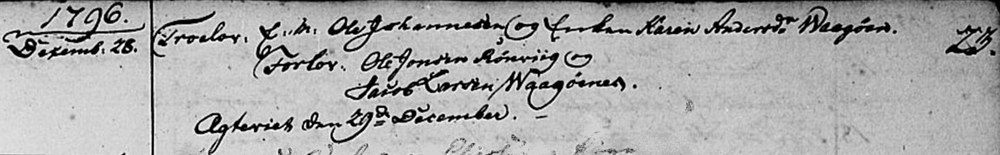 1796.
Decemb. 28. Troelov. E. M. Ole Johannesen og Enken Karen Andersdr Waagøen. 23.
Forlov. Ole Jonsen Rönviig og
Jacob Larsen Waagøenes.
Ægteviet den 29de December.